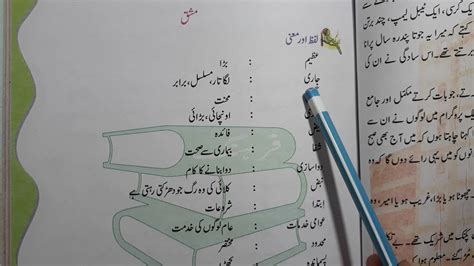 مشق
لفظ اور معنی
عظیم : بڑا
جاری : لگاتار، مسلسل، برابر
: محنت
: اونچائی، بڑائی
: فائدہ
شفا : بیماری سے صحت
دواسازی : دوا بنانے کا کام
نبض : کلائی کی وہ رگ جو دھڑکتی رہتی ہے
ابتدا : شروعات
عوامی خدمات : عام لوگوں کی خدمت
محدود : مختصر
پسماندہ :
کرسی، ایک ٹیبل لیمپ، چند برتن
کہتے کہ میرا یہ جوتا پندرہ سال پرانا
تھے۔ اس سادگی نے ان کی
تے، جو بات کرتے مکمل اور جامع
پروگرام میں لوگوں نے ان سے
کہنا چاہتا ہوں کہ میں آج بھی صبح
میں یہی رائے دوں گا کہ وہ
چھوٹا ہو یا بڑا، غریب ہو یا امیر، وہ
میں شریک تھے۔
گزرے۔ معلوم ہوا کہ